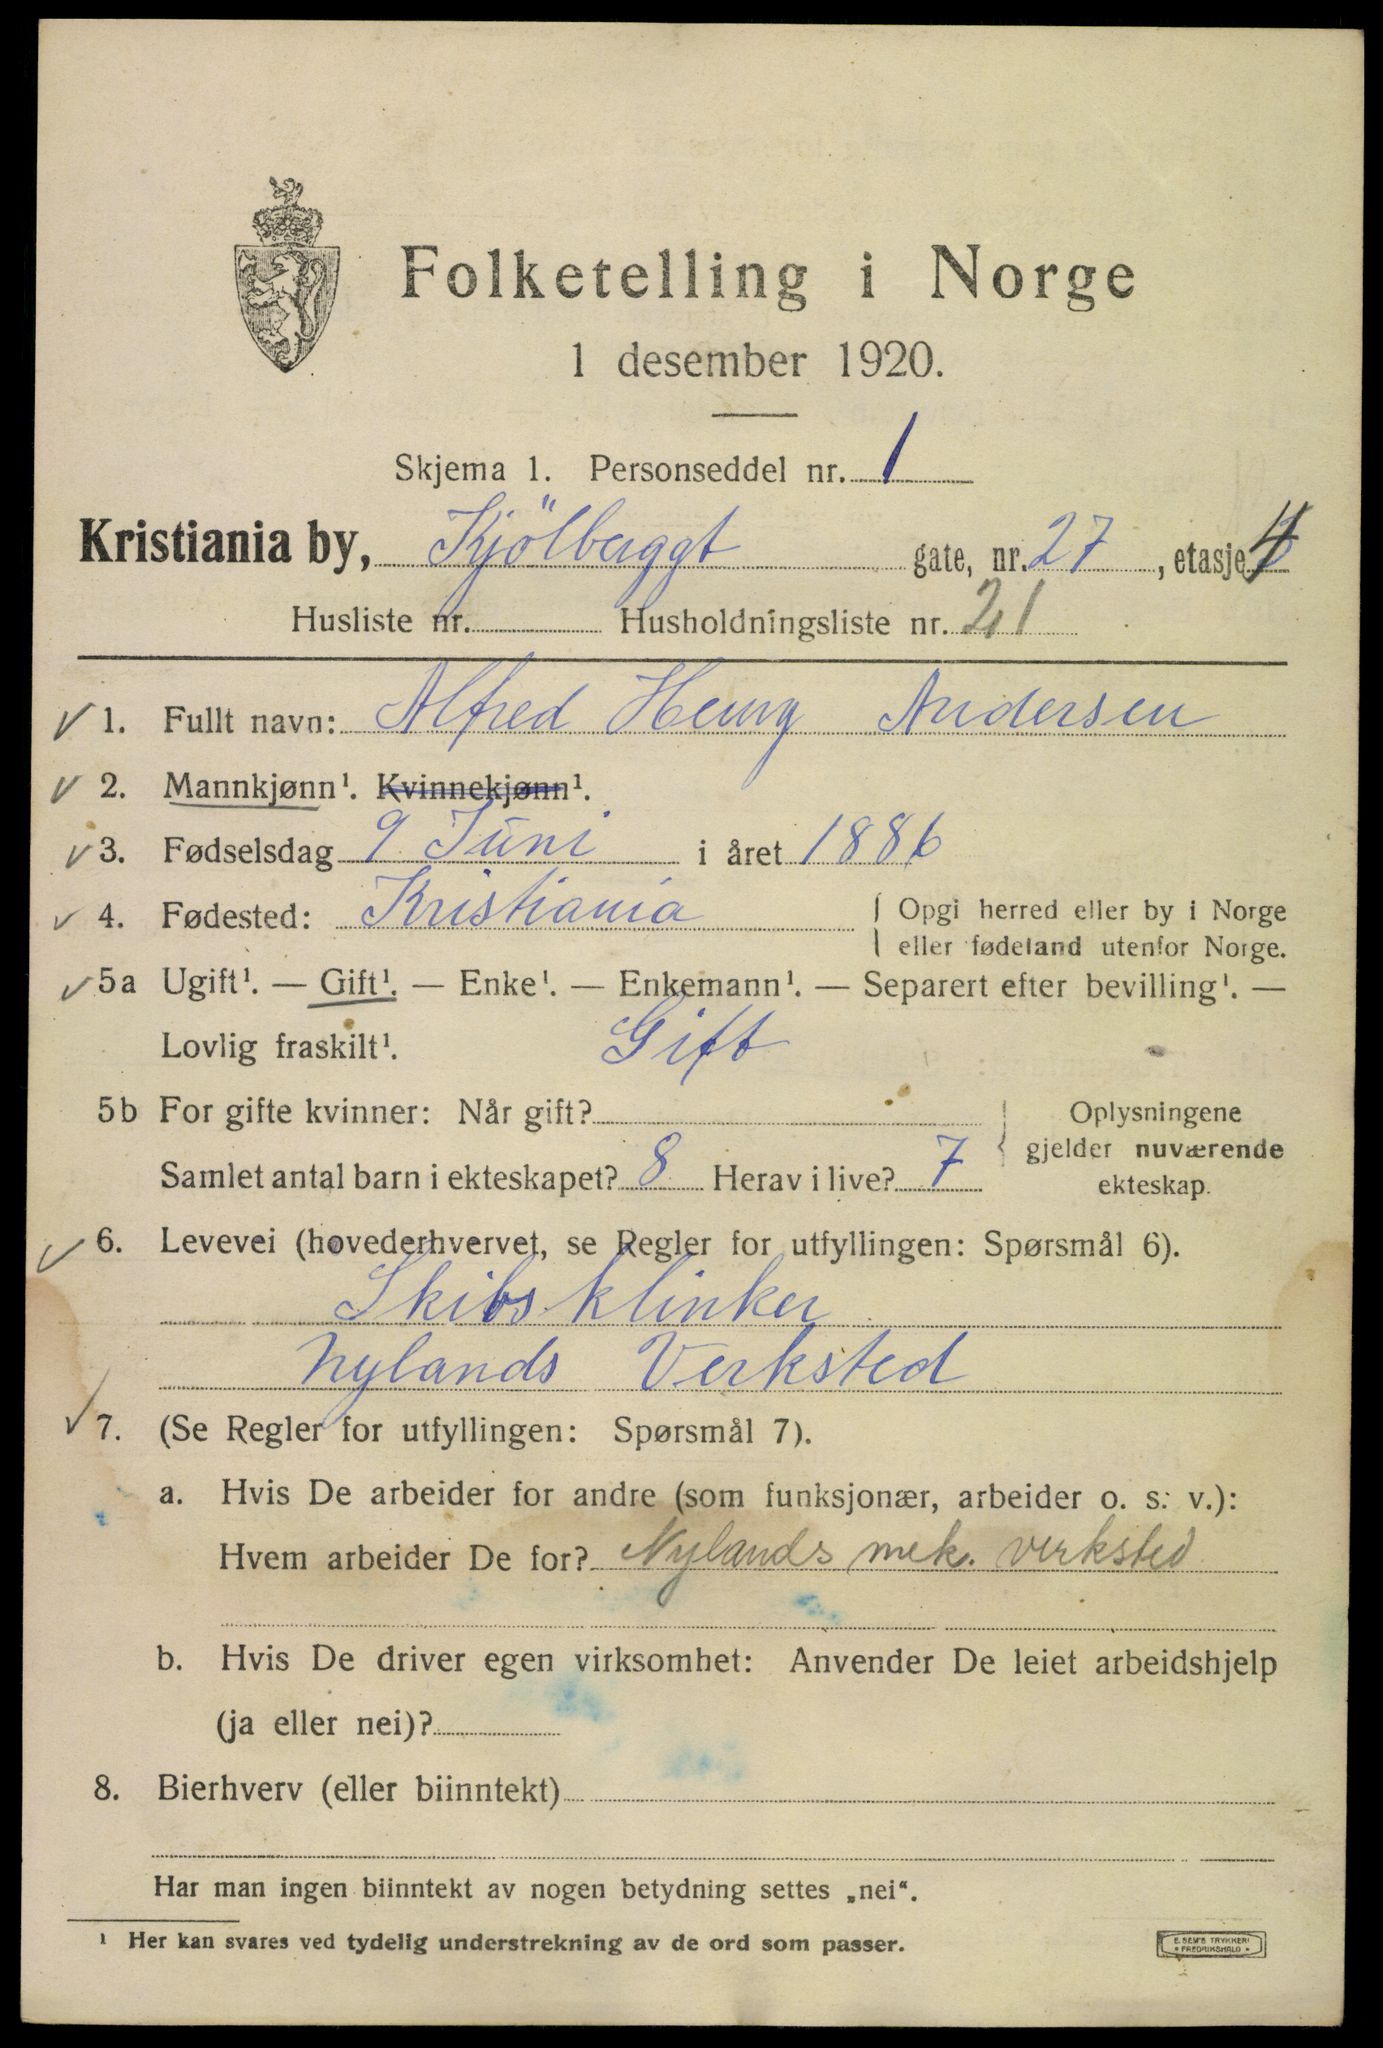 Folketelling i Norge
1 desember 1920.
Skjema 1. Personseddel nr. 1
Kristiania by, Kjölberggt gate, nr. 27, etasje 4
Husliste nr. Husholdningsliste nr. 21
1. Fullt navn: Alfred Henry Andersen
2. Mannkjønn¹. Kvinnekjønn¹.
3. Fødselsdag 9 Juni i året 1886
4. Fødested: Kristiania { Opgi herred eller by i Norge
eller fødeland utenfor Norge.
5a Ugift¹. — Gift¹. — Enke¹. — Enkemann¹. — Separert efter bevilling¹. —
Lovlig fraskilt¹. Gift
5b For gifte kvinner: Når gift? Oplysningene
gjelder nuværende
Samlet antal barn i ekteskapet? 8 Herav i live? 7 ekteskap.
6. Levevei (hovederhvervet, se Regler for utfyllingen: Spørsmål 6).
Skibsklinker
Nylands Verksted
7. (Se Regler for utfyllingen: Spørsmål 7).
a. Hvis De arbeider for andre (som funksjonær, arbeider o. s. v.):
Hvem arbeider De for? Nylands mek. verksted
b. Hvis De driver egen virksomhet: Anvender De leiet arbeidshjelp
(ja eller nei)?
8. Bierhverv (eller biinntekt)
Har man ingen biinntekt av nogen betydning settes „nei“.
¹ Her kan svares ved tydelig understrekning av de ord som passer.
E. SEM'S TRYKKERI
• FREDRIKSHALD •